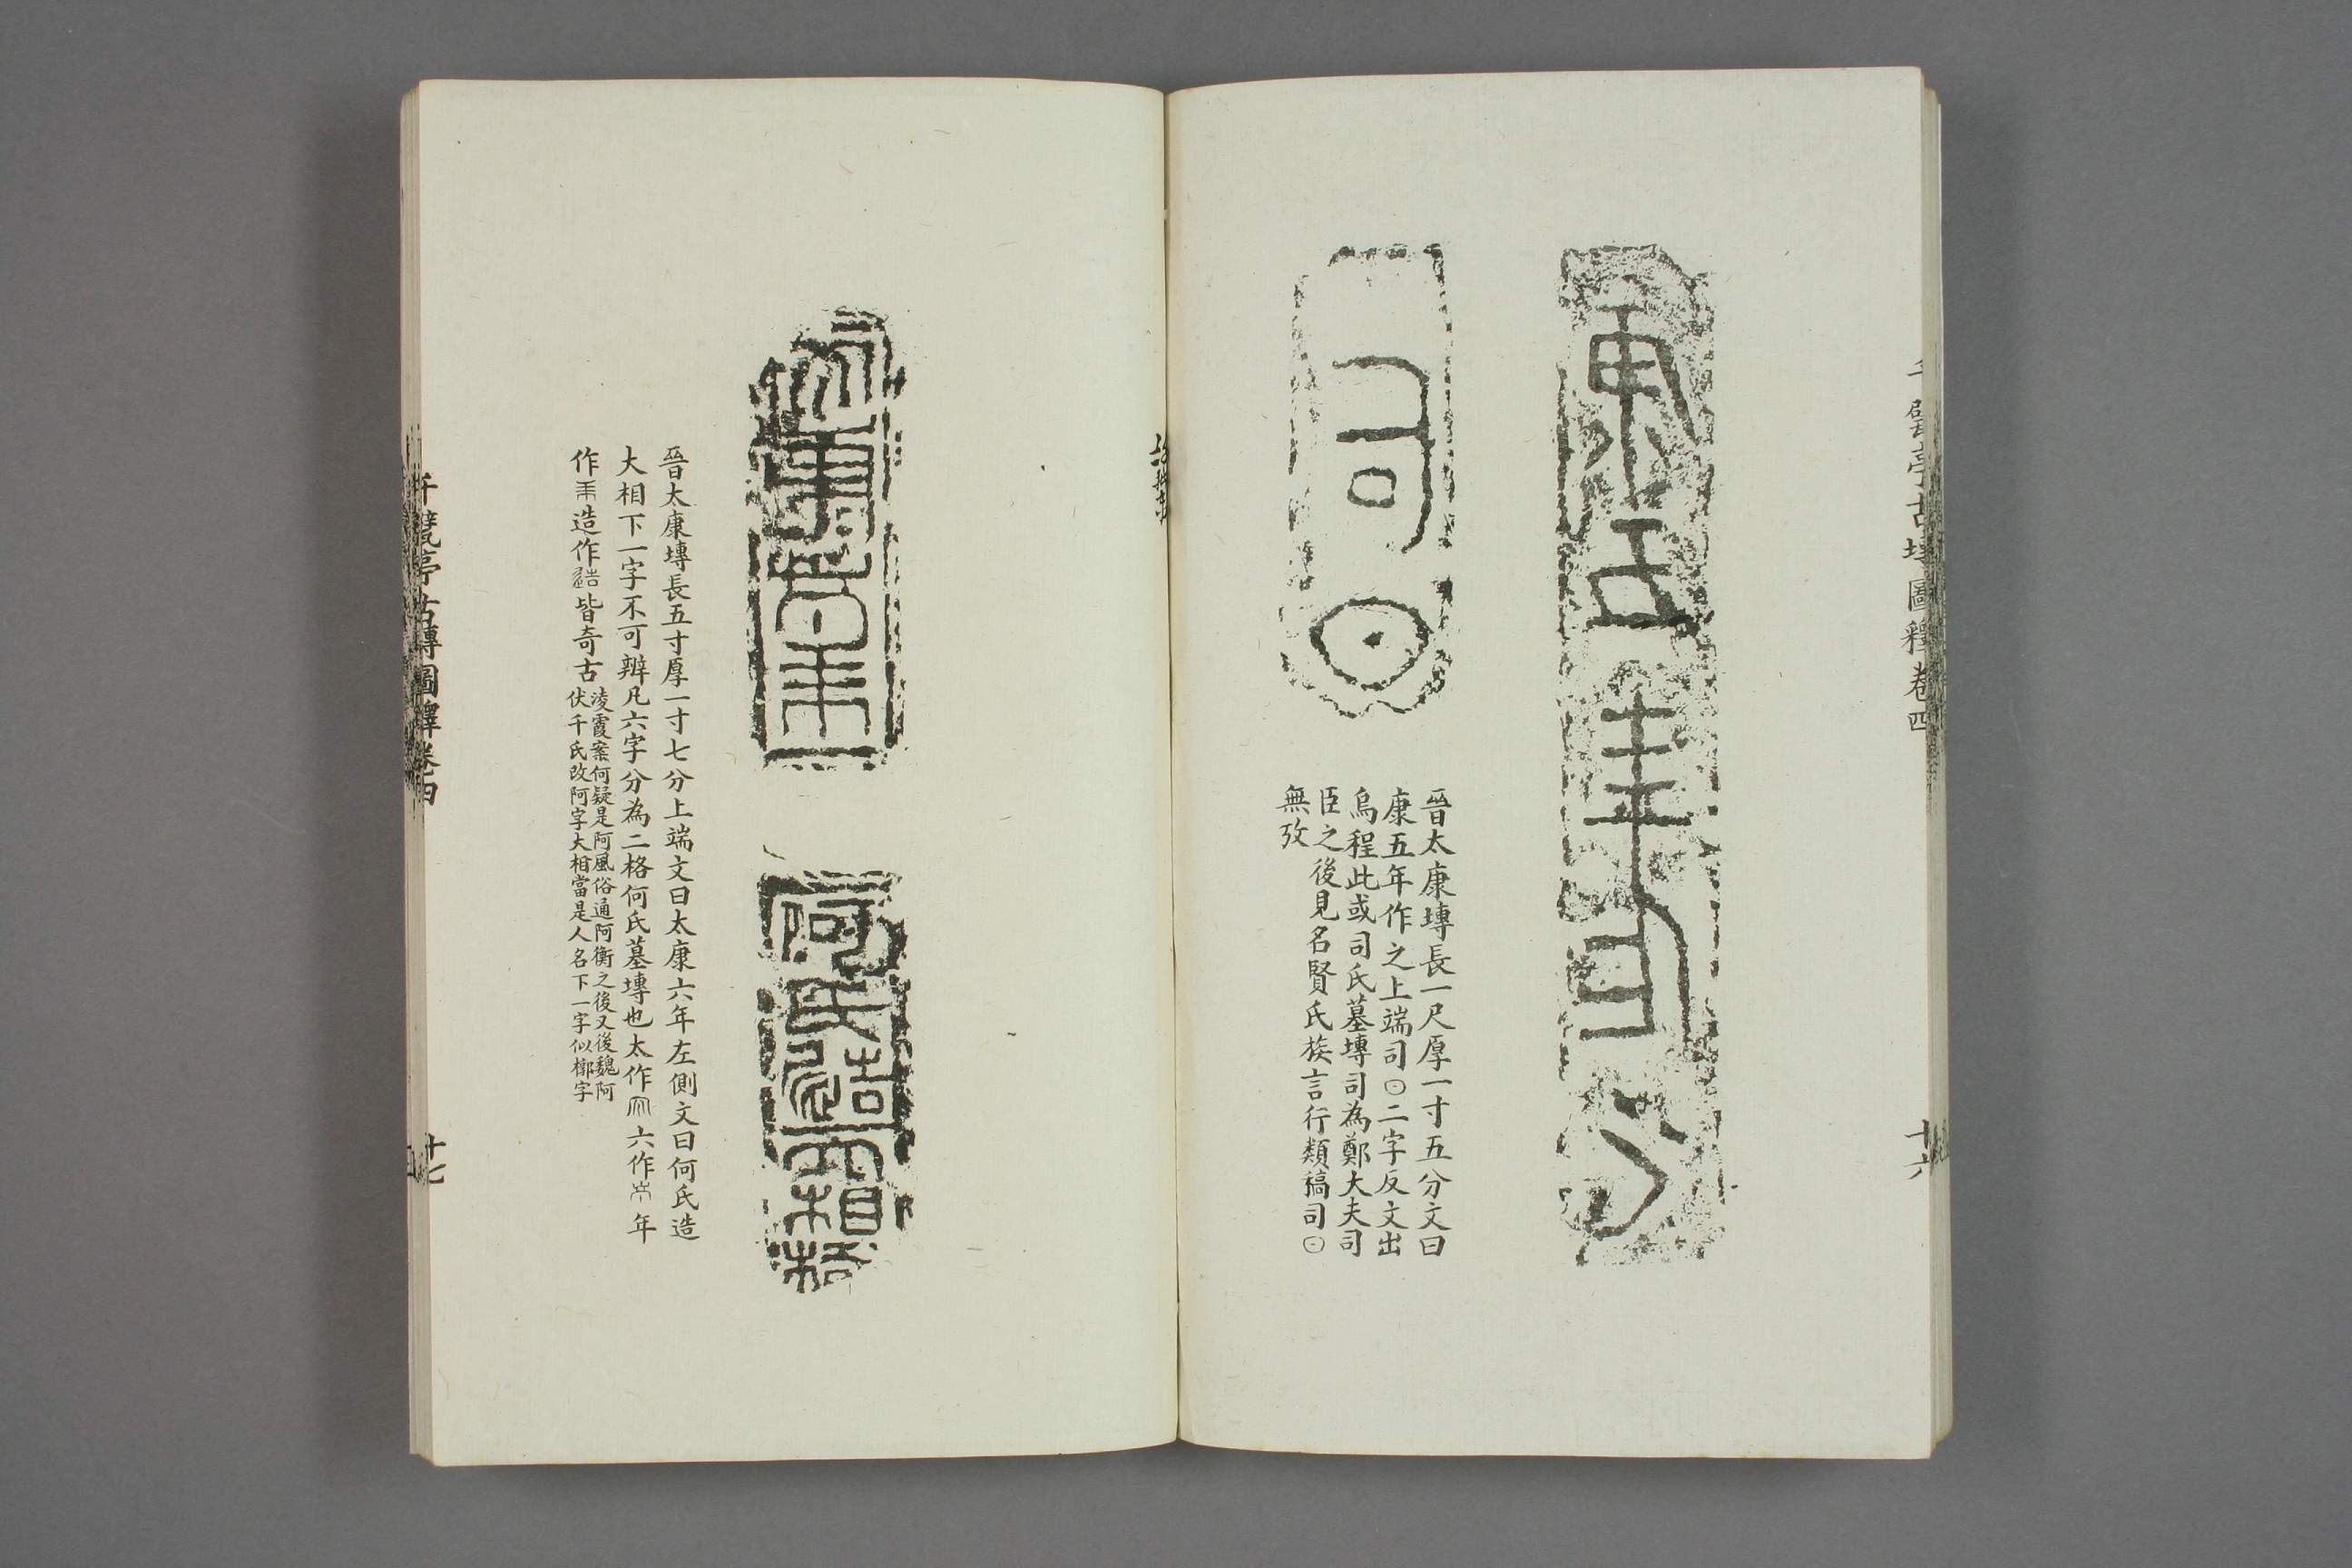 晉太康塼長一尺厚一寸五分文曰
康五年作之上端司⊙二字反文出
烏程此或司氏墓塼司為鄭大夫司
臣之後見名賢氏族言行類稿司⊙
無攷
千甓亭古塼圖釋卷四
十六
晉太康塼長五寸厚一寸七分上端文曰太康六年左側文曰何氏造
大相下一字不可辨凡六字分為二格何氏墓塼也太作 六作 年
作 造作 皆奇古
凌霞案何疑是阿風俗通阿衡之後又後魏阿
伏千氏改阿字大相當是人名下一字似槨字
千甓亭古塼圖釋卷四
十七